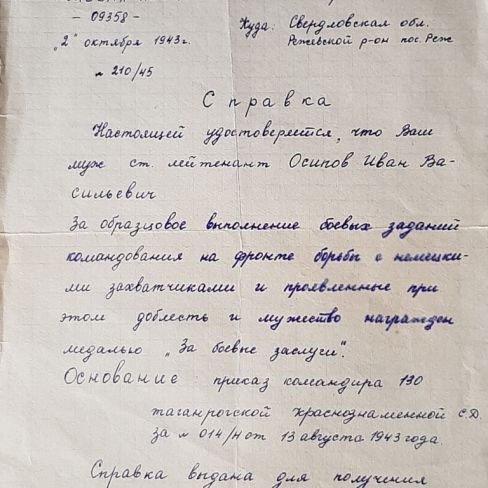 - 09358 -
"2" октября 1943г.
№ 210/45
Куда: Свердловская обл.
Режевской р-он пос. Реж
Справка
Настоящей удостоверяется, что Ваш
муж ст. лейтенант Осипов Иван Ва-
сильевич
За образцовое выполнение боевых заданий
командования на фронте борьбы с немецки-
ми захватчиками и проявленные при
этом доблесть и мужество награжден
медалью „За боевые заслуги".
Основание приказ командира 130
таганрогской краснознаменной С.Д.
за № 014/Н от 13 августа 1943 года.
Справка выдана для получения